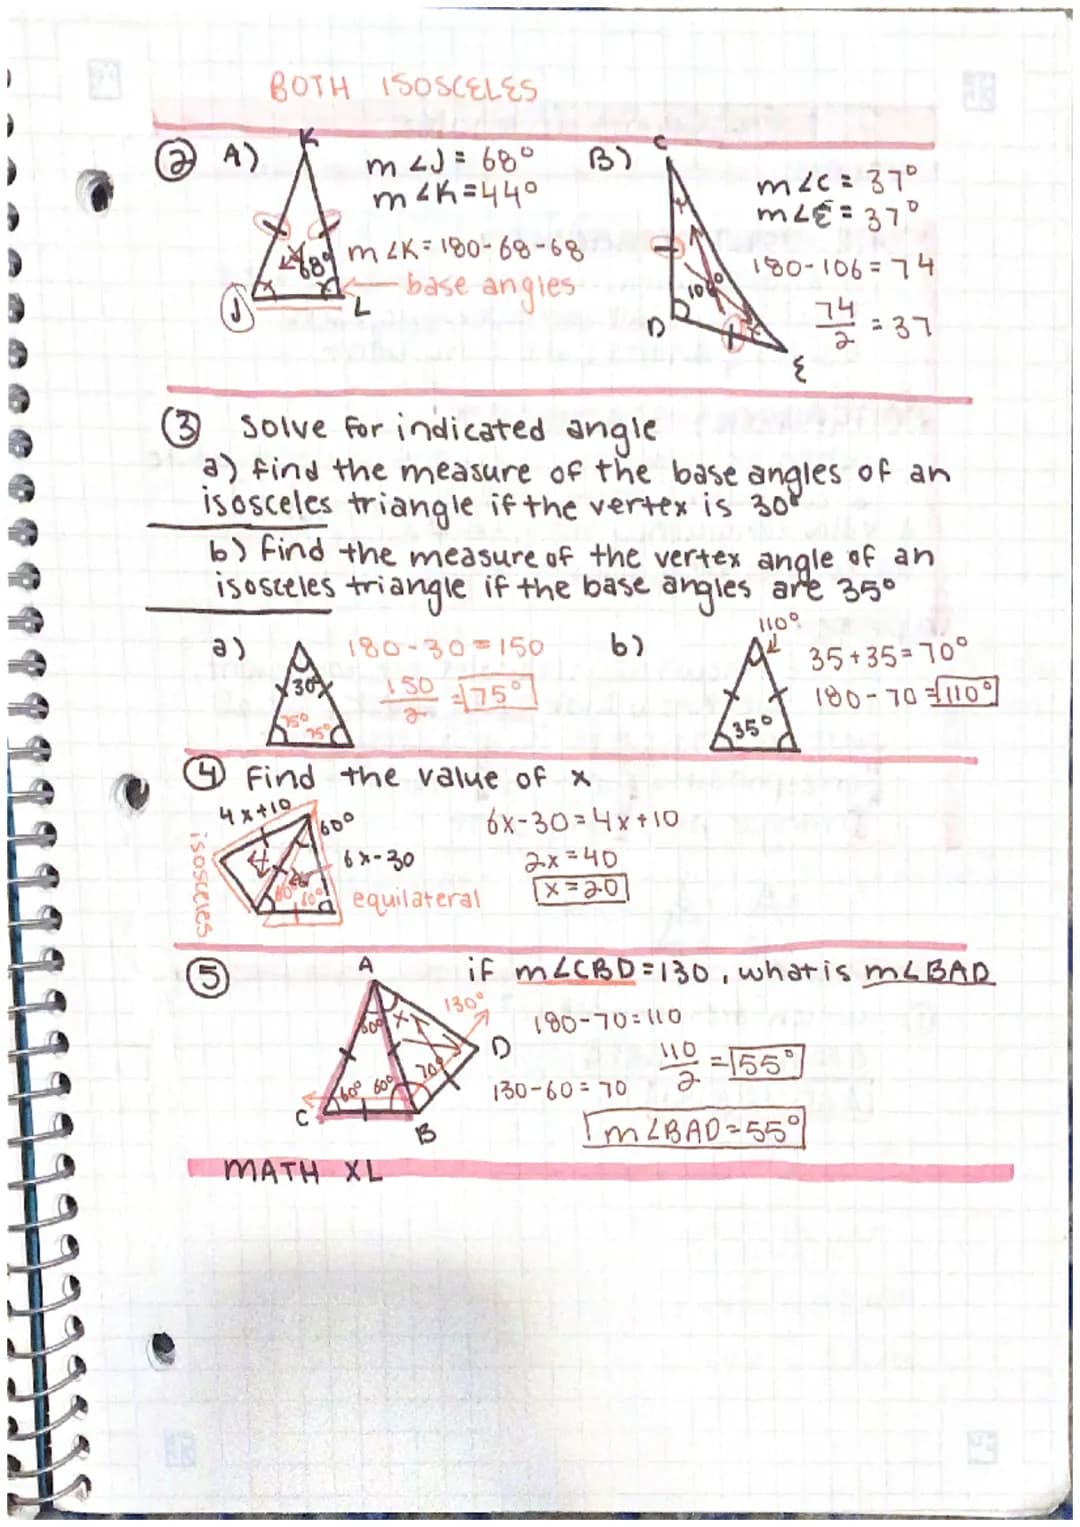 BOTH ISOSCELES
② A) K
m∠J = 68°
m∠K=44°
m∠K=180-68-68
68°
base angles
J
L
B) C
m∠C = 37°
m∠E = 37°
180-106 = 74
74/2 = 37
106°
D
E
③ Solve for indicated angle
a) find the measure of the base angles of an
isosceles triangle if the vertex is 30°
b) find the measure of the vertex angle of an
isosceles triangle if the base angles are 35°
a)
180-30=150
150/2 = 75°
30°
75° 75°
b)
110°
35+35=70°
180-70=110°
35°
④ Find the value of x
4x+10
60°
6x-30
isosceles
60° 60°
equilateral
6x-30=4x+10
2x=40
x=20
⑤ A
if m∠CBD=130, what is m∠BAD
130°
180-70=110
60° x
D
110/2 = 55°
60° 60° 70°
130-60=70
C
B
m∠BAD=55°
MATH XL